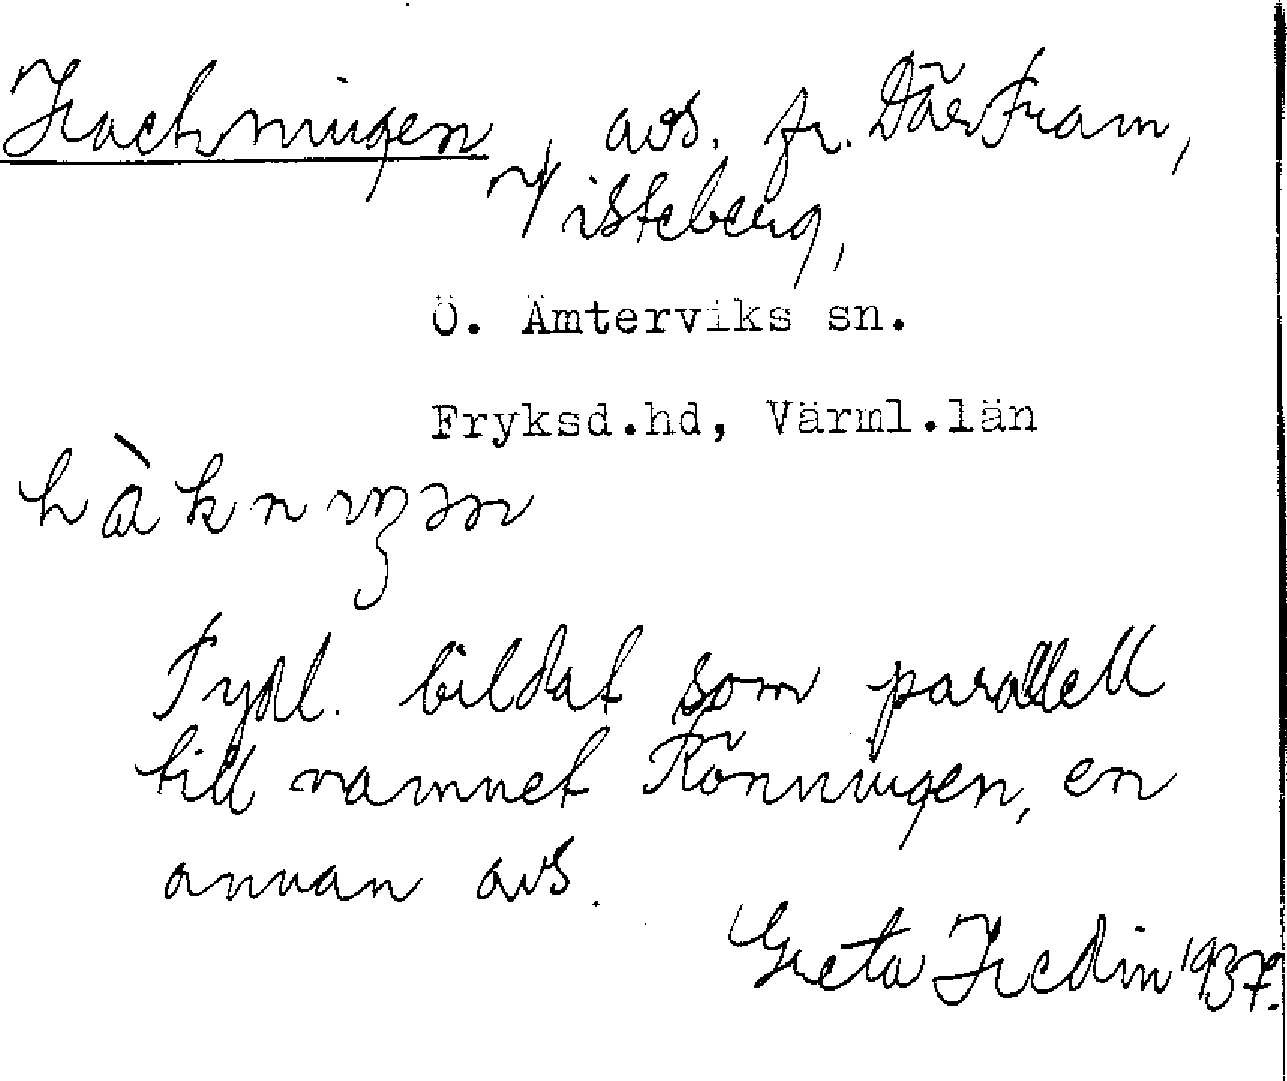 Hackningen, avs. fr. Där Fram,
Visteberg,
Ö. Ämterviks sn.
Fryksd.hd, Värml.län
hàknıŋən
Tydl. bildat som parallell
till namnet Rönningen, en
annan avs.
Greta Hedin 1937.